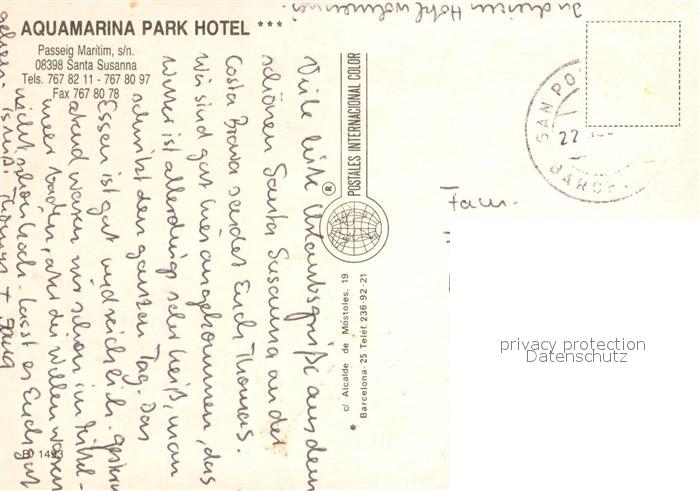 AQUAMARINA PARK HOTEL ***
Passeig Marítim, s/n.
08398 Santa Susanna
Tels. 767 82 11 - 767 80 97
Fax 767 80 78
In diesem Hotel wohnen wir.
Viele liebe Urlaubsgrüße aus dem
schönen Santa Susanna an der
Costa Brava sendet Euch Thomas.
Wir sind gut hier angekommen, das
Wetter ist allerdings sehr heiß, man
schwitzt den ganzen Tag. Das
Essen ist gut und reichlich. Gestern
abend waren wir schon im Mittel-
meer baden, aber die Wellen waren
nicht schön hoch. Lasst es Euch gut
gehen. Thomas +
POSTALES INTERNACIONAL COLOR
®
* c/ Alcalde de Móstoles, 19
Barcelona-25 Teléf. 236-92-21
SAN PO
22
BARCE
Fam.
B) 1493
privacy protection
Datenschutz